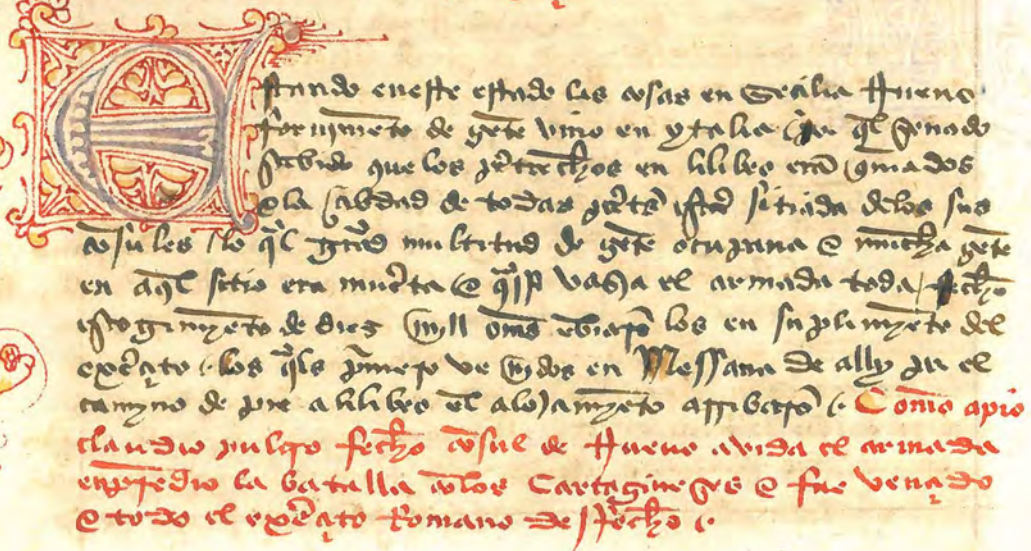 Estando eneste estado las cosas en Secilia Nueuo
fornimẽto de gẽte vino en ytalia por q̃l senado
sabido que los ꝑtrechos en lilibeo erã q̃mados
e la çibdad de todas ꝑtes estar sitiada delos sus
cõsules lo q̃l grãd multitud de gẽte ocupaua e mucha gẽte
en aq̃l sitio era muerta e vazia el armada toda fecho
escogimyẽto de diez mill om̃s ẽbiarõ los en suplimyẽto del
exerçito los q̃les primero venidos en Messana de ally por el
camyno de pie a lilibeo el aloJamyẽto arribarõ Como apio
claudio pulcro fecho cõsul de Nueuo avida el armada
enprendio la batalla cõlos Cartagineses e fue vençido
e todo el exerçito Romano desfecho